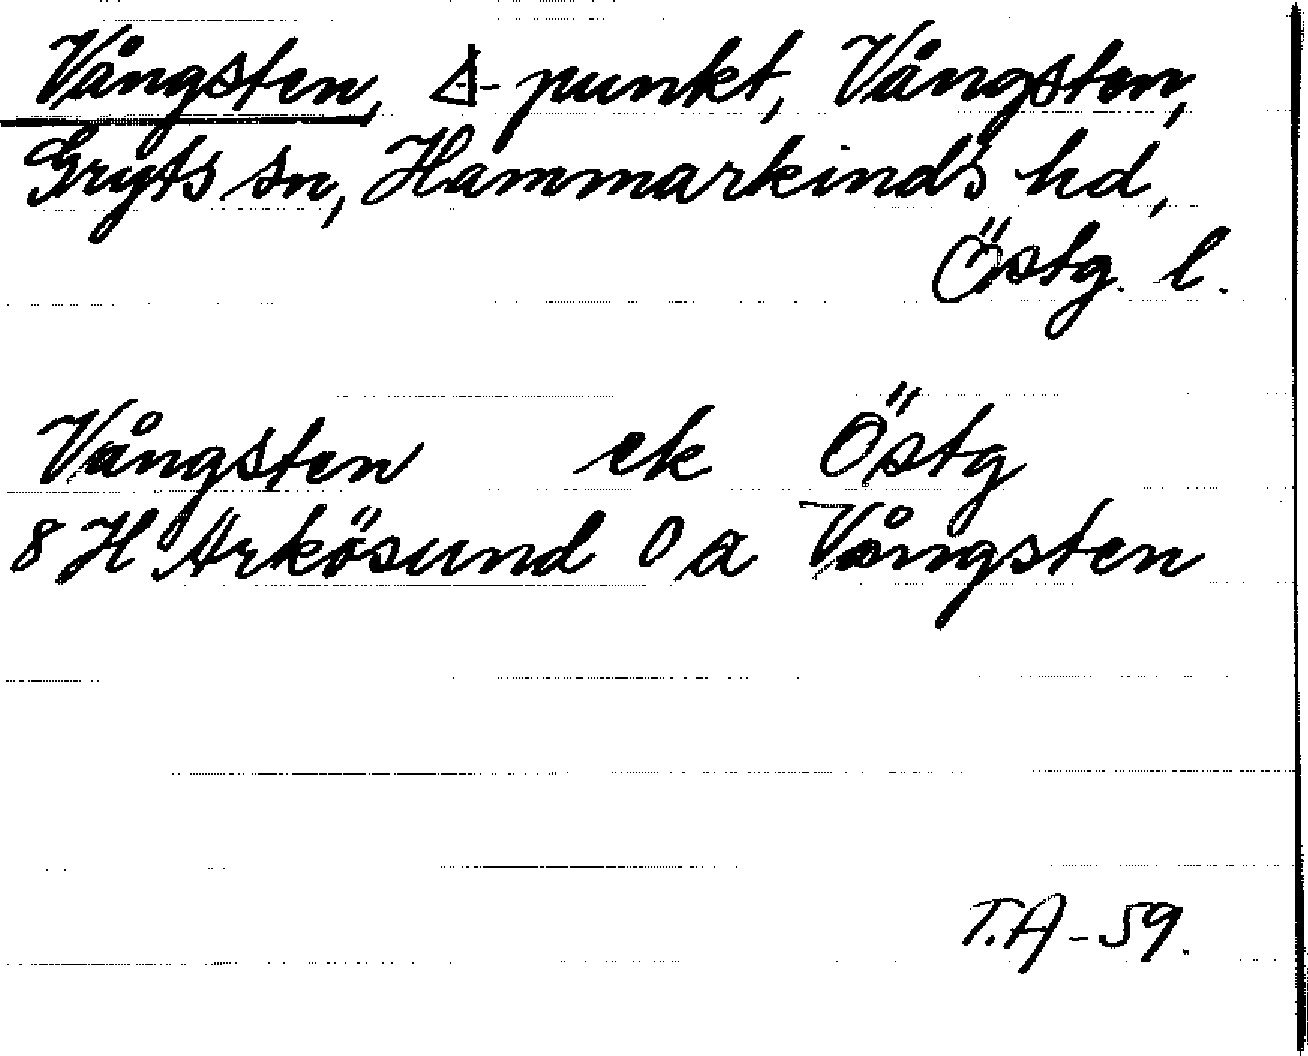 Vångsten, Δ-punkt, Vångsten,
Gryts sn, Hammarkinds hd,
Östg. l.
Vångsten ek Östg
8 H Arkösund 0 a Vångsten
T.A-59.